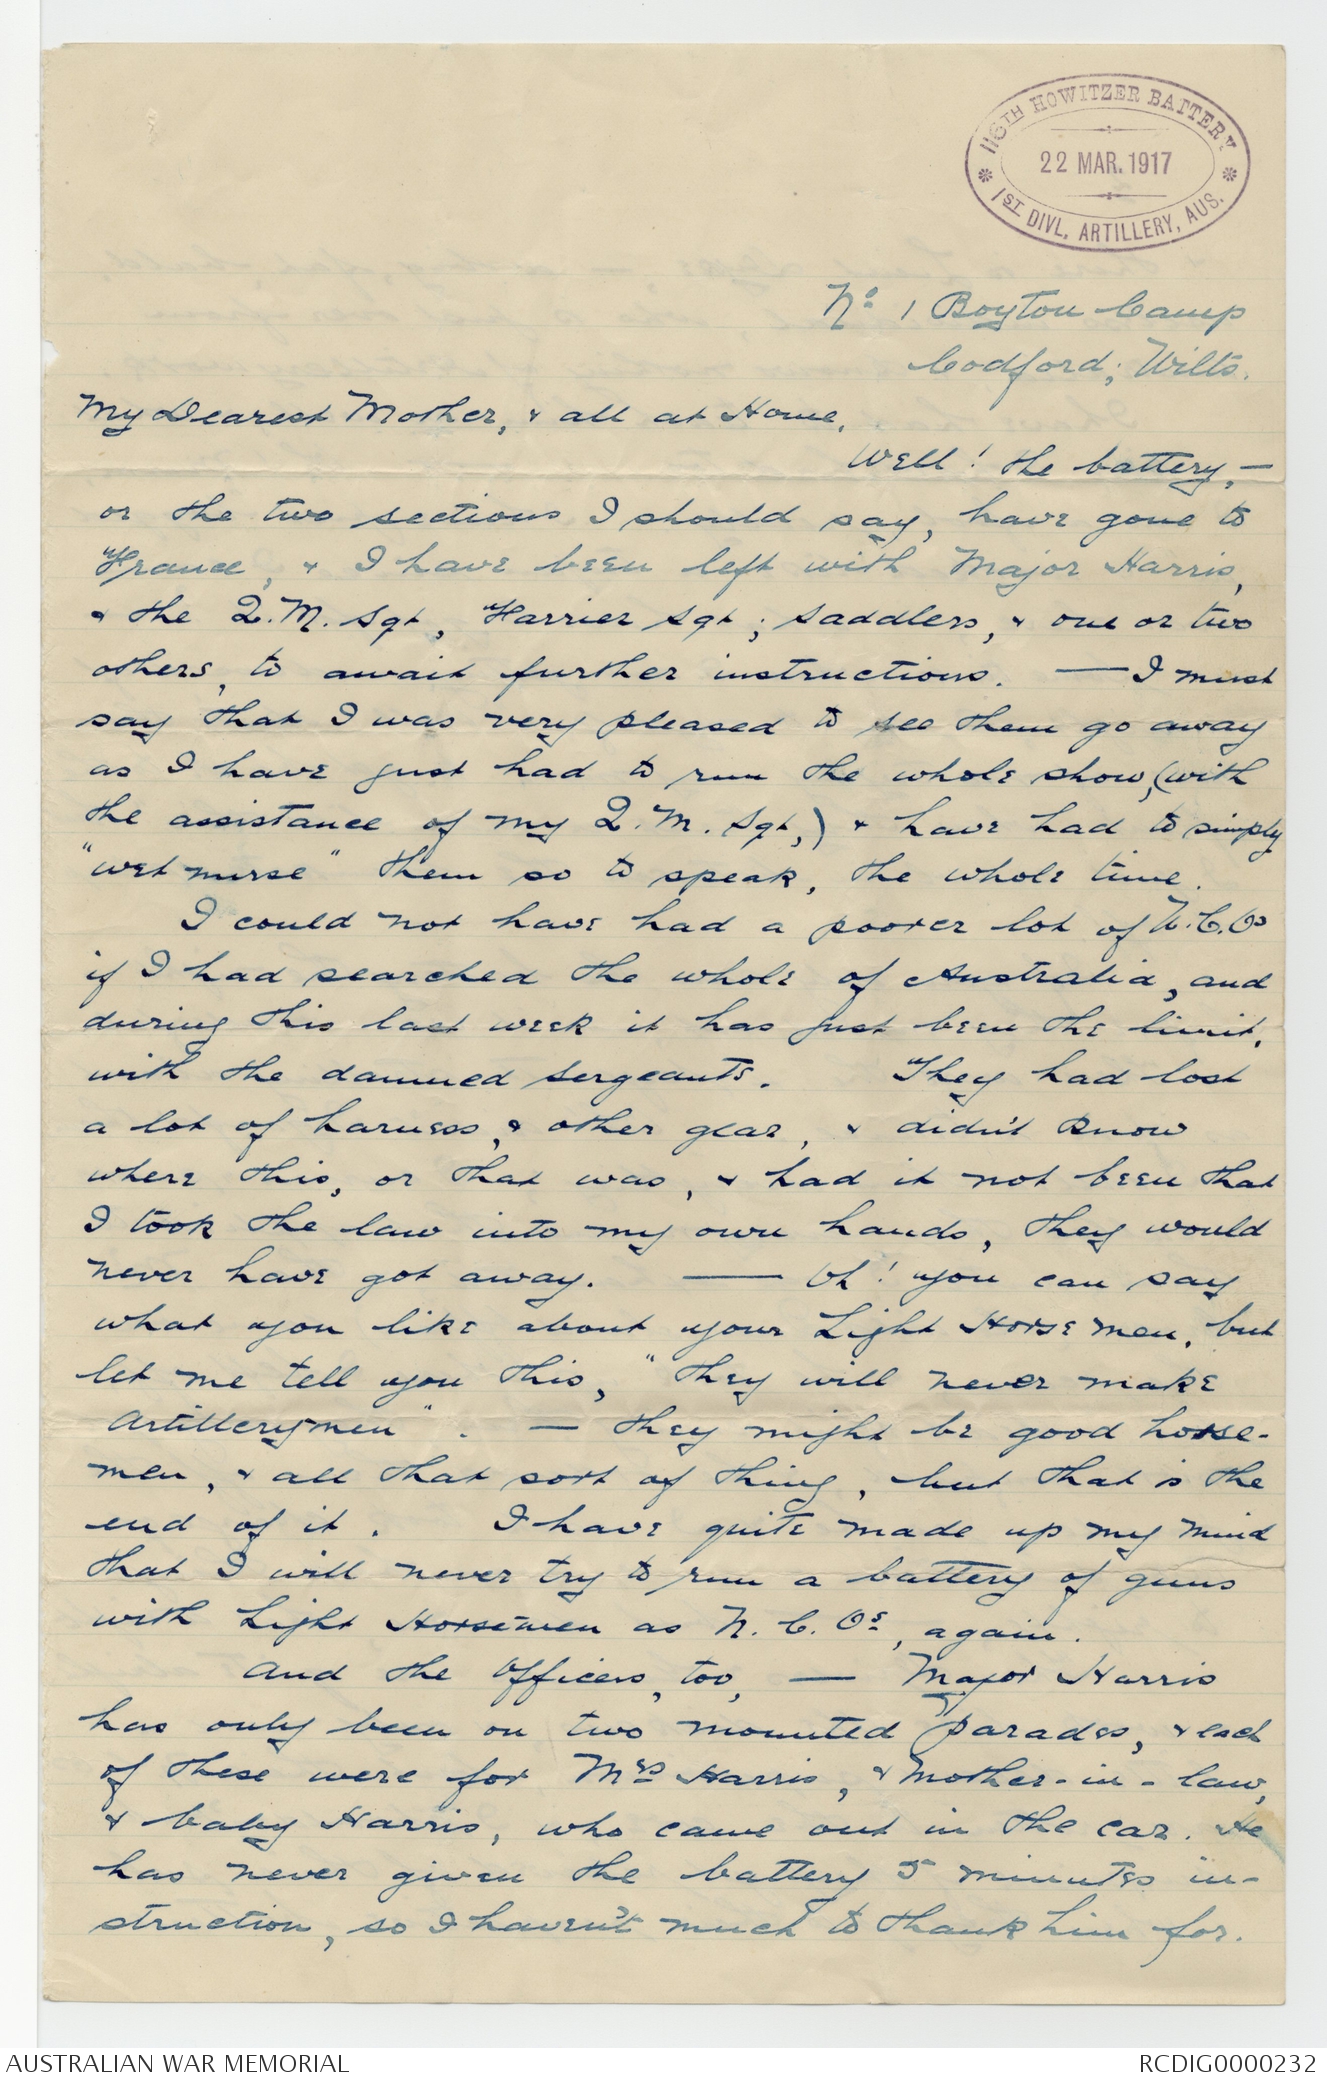 116TH HOWITZER BATTERY
22 MAR. 1917
1ST DIVL. ARTILLERY, AUS.
No 1 Boyton Camp
Codford; Wilts.
My Dearest Mother, & all at Home,
Well! the battery, —
or the two sections I should say, have gone to
France, & I have been left with Major Harris,
& the Q.M. Sgt, Farrier Sgt; Saddlers, & one or two
others, to await further instructions. — I must
say that I was very pleased to see them go away
as I have just had to run the whole show, (with
the assistance of my Q.M. Sgt,) & have had to simply
"wet nurse" them so to speak, the whole time.
I could not have had a poorer lot of N.C.Os
if I had searched the whole of Australia, and
during this last week it has just been the limit,
with the damned sergeants. They had lost
a lot of harness, & other gear, & didn't know
where this, or that was, & had it not been that
I took the law into my own hands, they would
never have got away. — Oh! you can say
what you like about your Light Horse men, but
let me tell you this, "they will never make
Artillerymen". — they might be good horse-
men, & all that sort of thing, but that is the
end of it. I have quite made up my mind
that I will never try to run a battery of guns
with Light Horsemen as N.C.Os, again.
And the Officers, too, — Major Harris
has only been on two mounted parades, & each
of these were for Mrs Harris, & Mother-in-law,
& baby Harris, who came out in the car. He
has never given the battery 5 minutes in-
struction, so I haven't much to thank him for.
AUSTRALIAN WAR MEMORIAL
RCDIG0000232